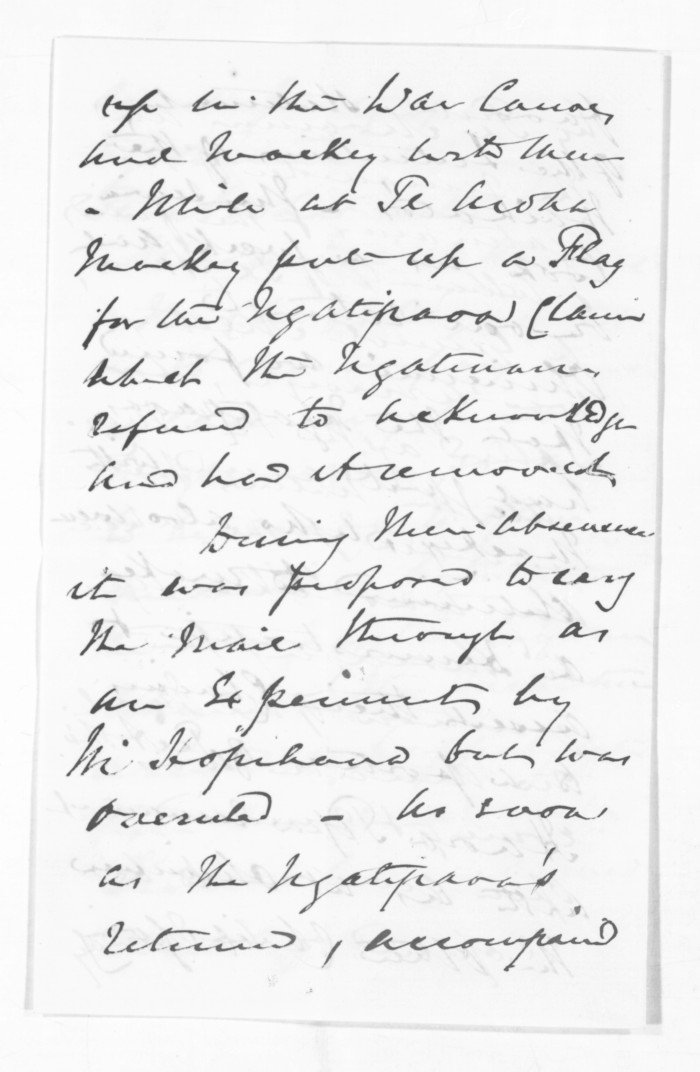 up in the War Canoes
and Mackey with them
- While at Te Aroha
Mackey put up a Flag
for the Ngatipaoa Claim
which the Ngatimaru
refused to acknowledge
and had it removed
During their absence
it was proposed to carry
the Mail through as
an Experiment by
Wi Kopihana but was
overruled - As soon
as the Ngatipaoa's
returned, accompanied